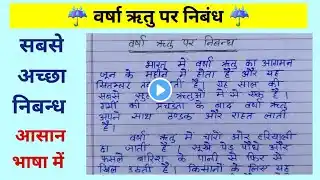 वर्षा ऋतु पर निबंध
सबसे
अच्छा
निबन्ध
आसान
भाषा में
वर्षा ऋतु पर निबन्ध
भारत में वर्षा ऋतु का आगमन
जून के महीने में होता है और यह
सितम्बर है। यह साल की
सबसे ऋतुओं में से एक है।
गर्मी की प्रचंडता के बाद वर्षा ऋतु
अपने साथ ठण्डक और राहत लाती
है।
वर्षा ऋतु में चारों ओर हरियाली
छा जाती है। सूखे पेड़ पौधे और
फसलें बारिश के पानी से फिर से
खिल उठती हैं। किसानों के लिए यह